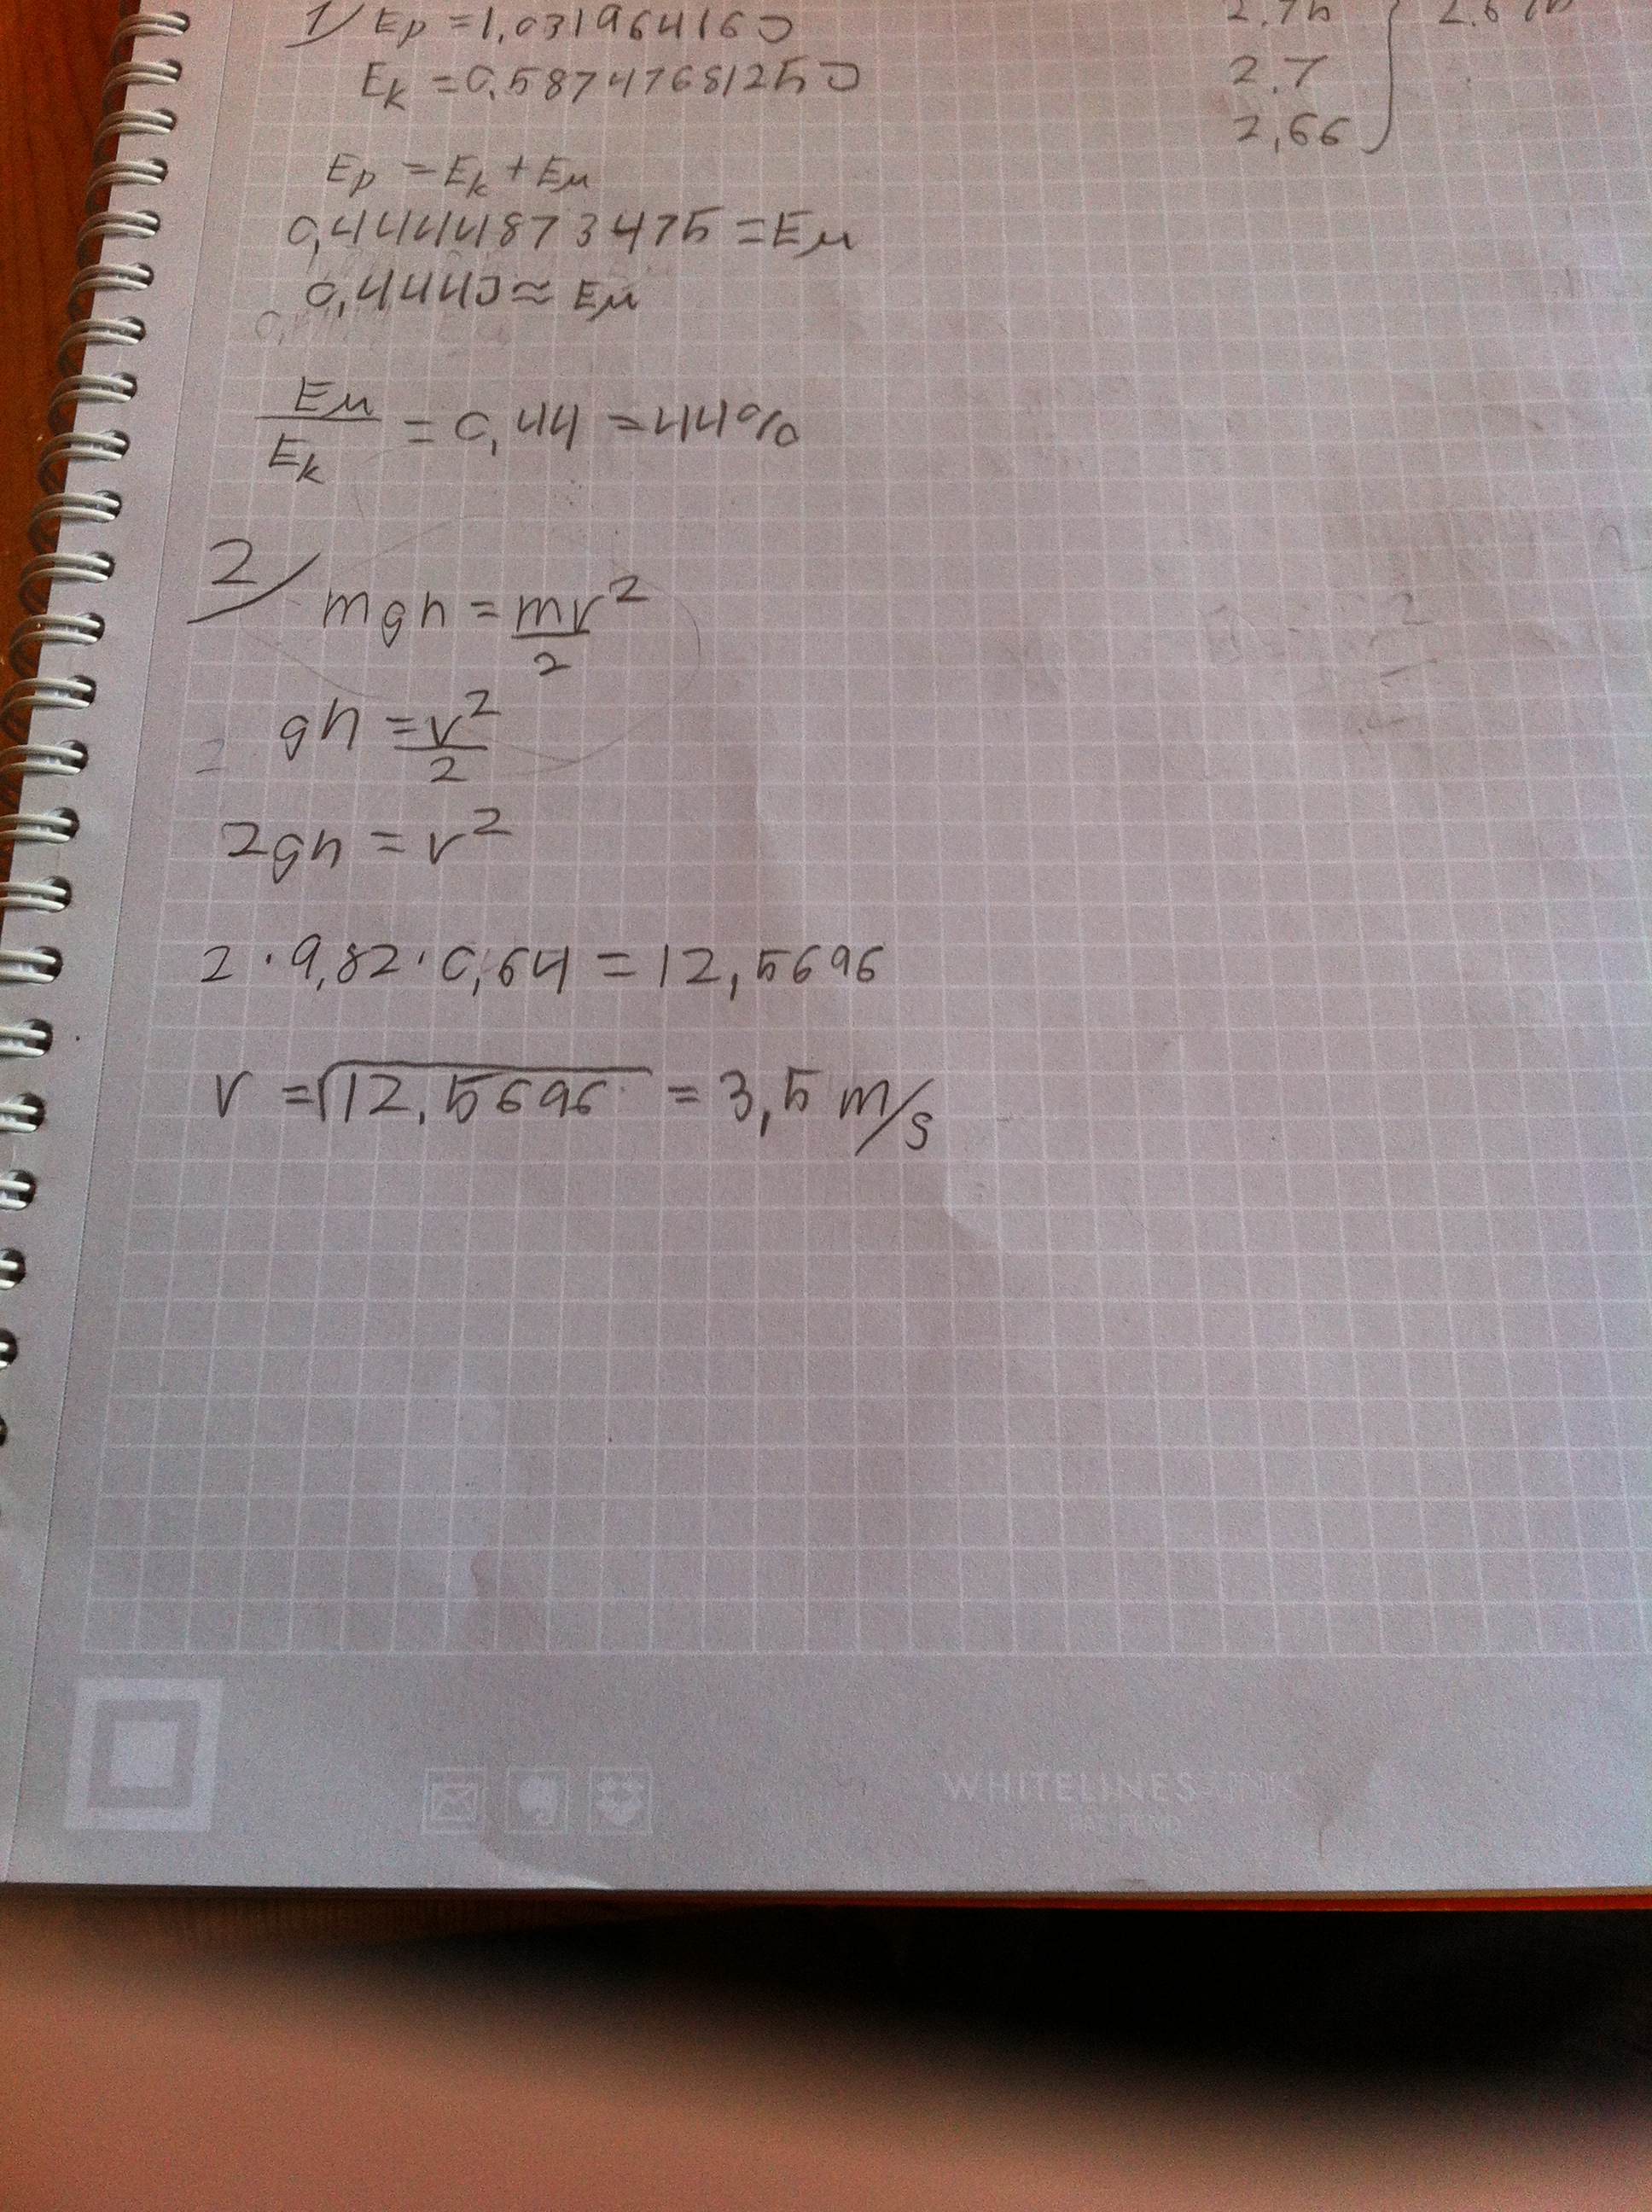 1/ Ep = 1,031964160 J
Ek = 0,58747681250 J
2.7
2,66
Ep = Ek + Eμ
0,4444873475 = Eμ
0,444J ≈ Eμ
Eμ/Ek = 0,44 = 44%
2/ mgh = mv²/2
gh = v²/2
2gh = v²
2 · 9,82 · 0,64 = 12,5696
v = √12,5696 = 3,5 m/s
WHITELINES